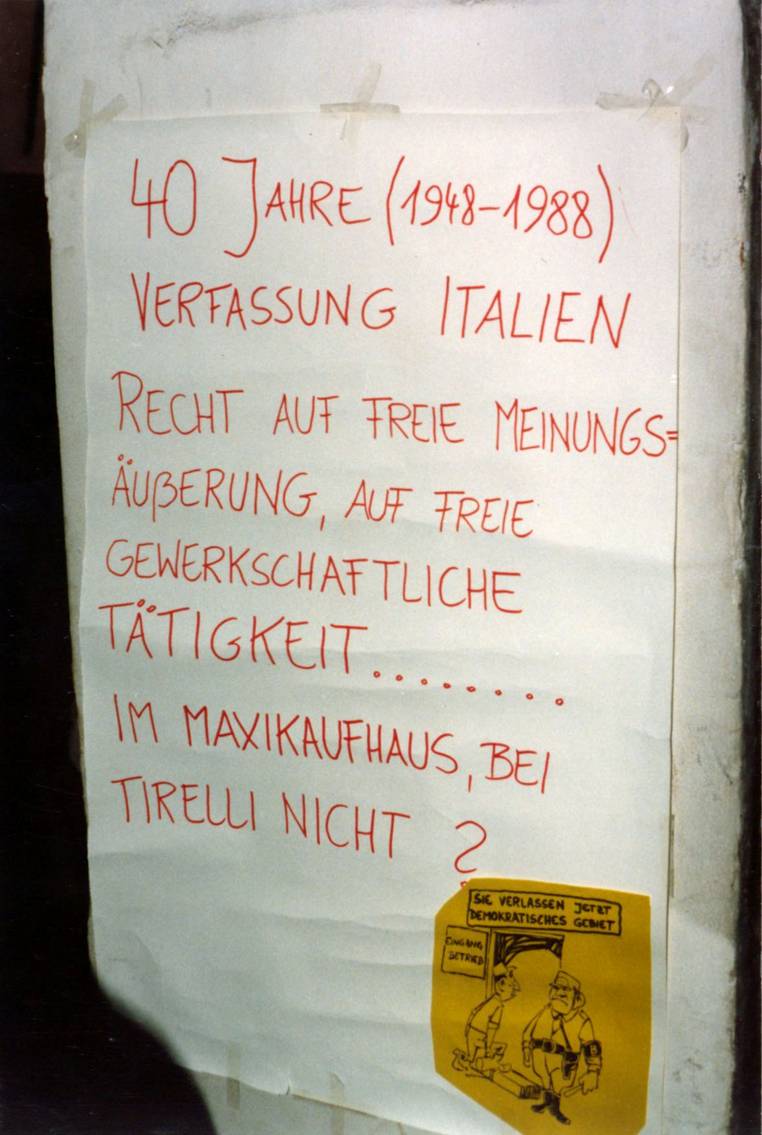 40 JAHRE (1948-1988)
VERFASSUNG ITALIEN
RECHT AUF FREIE MEINUNGS=
ÄUßERUNG, AUF FREIE
GEWERKSCHAFTLICHE
TÄTIGKEIT........
IM MAXIKAUFHAUS, BEI
TIRELLI NICHT ?
SIE VERLASSEN JETZT
DEMOKRATISCHES GEBIET
EINGANG
BETRIEB